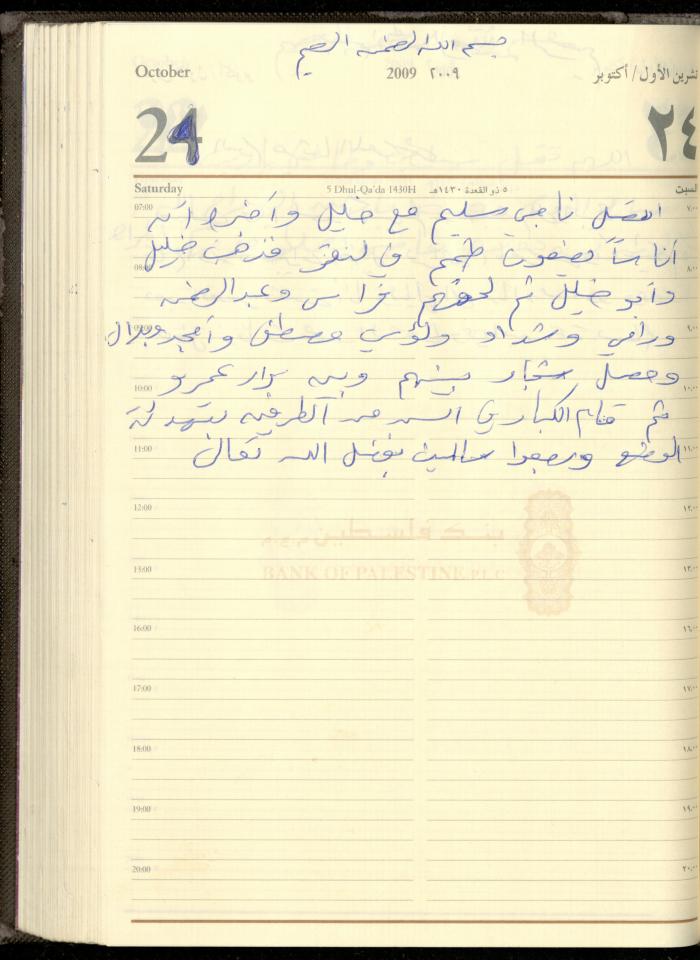 بسم الله الرحمن الرحيم
October 2009 ٢٠٠٩ تشرين الأول / أكتوبر
24 ٢٤
Saturday 5 Dhul-Qa'da 1430H ٥ ذو القعدة ١٤٣٠هـ السبت
07:00 اتصل ناجي سليم مع خليل وأخبره أنه ٧:٠٠
أناساً يضعون طمم في لنقر فذهب خليل
08:00 ٨:٠٠
وأبو خليل ثم لحقهم فراس وعبدالرحمن
09:00 ورامي وشداد ولؤي مصطفى وأمجد وبلال ٩:٠٠
وحصل شجار بينهم وبين نزار عمرو
10:00 ١٠:٠٠
ثم قام الكبار في السن من الطرفين بتهدئة
11:00 الوضع ورجعوا سالمين بفضل الله تعالى ١١:٠٠
12:00 ١٢:٠٠
بنك فلسطين
BANK OF PALESTINE P.L.C
13:00 ١٣:٠٠
16:00 ١٦:٠٠
17:00 ١٧:٠٠
18:00 ١٨:٠٠
19:00 ١٩:٠٠
20:00 ٢٠:٠٠